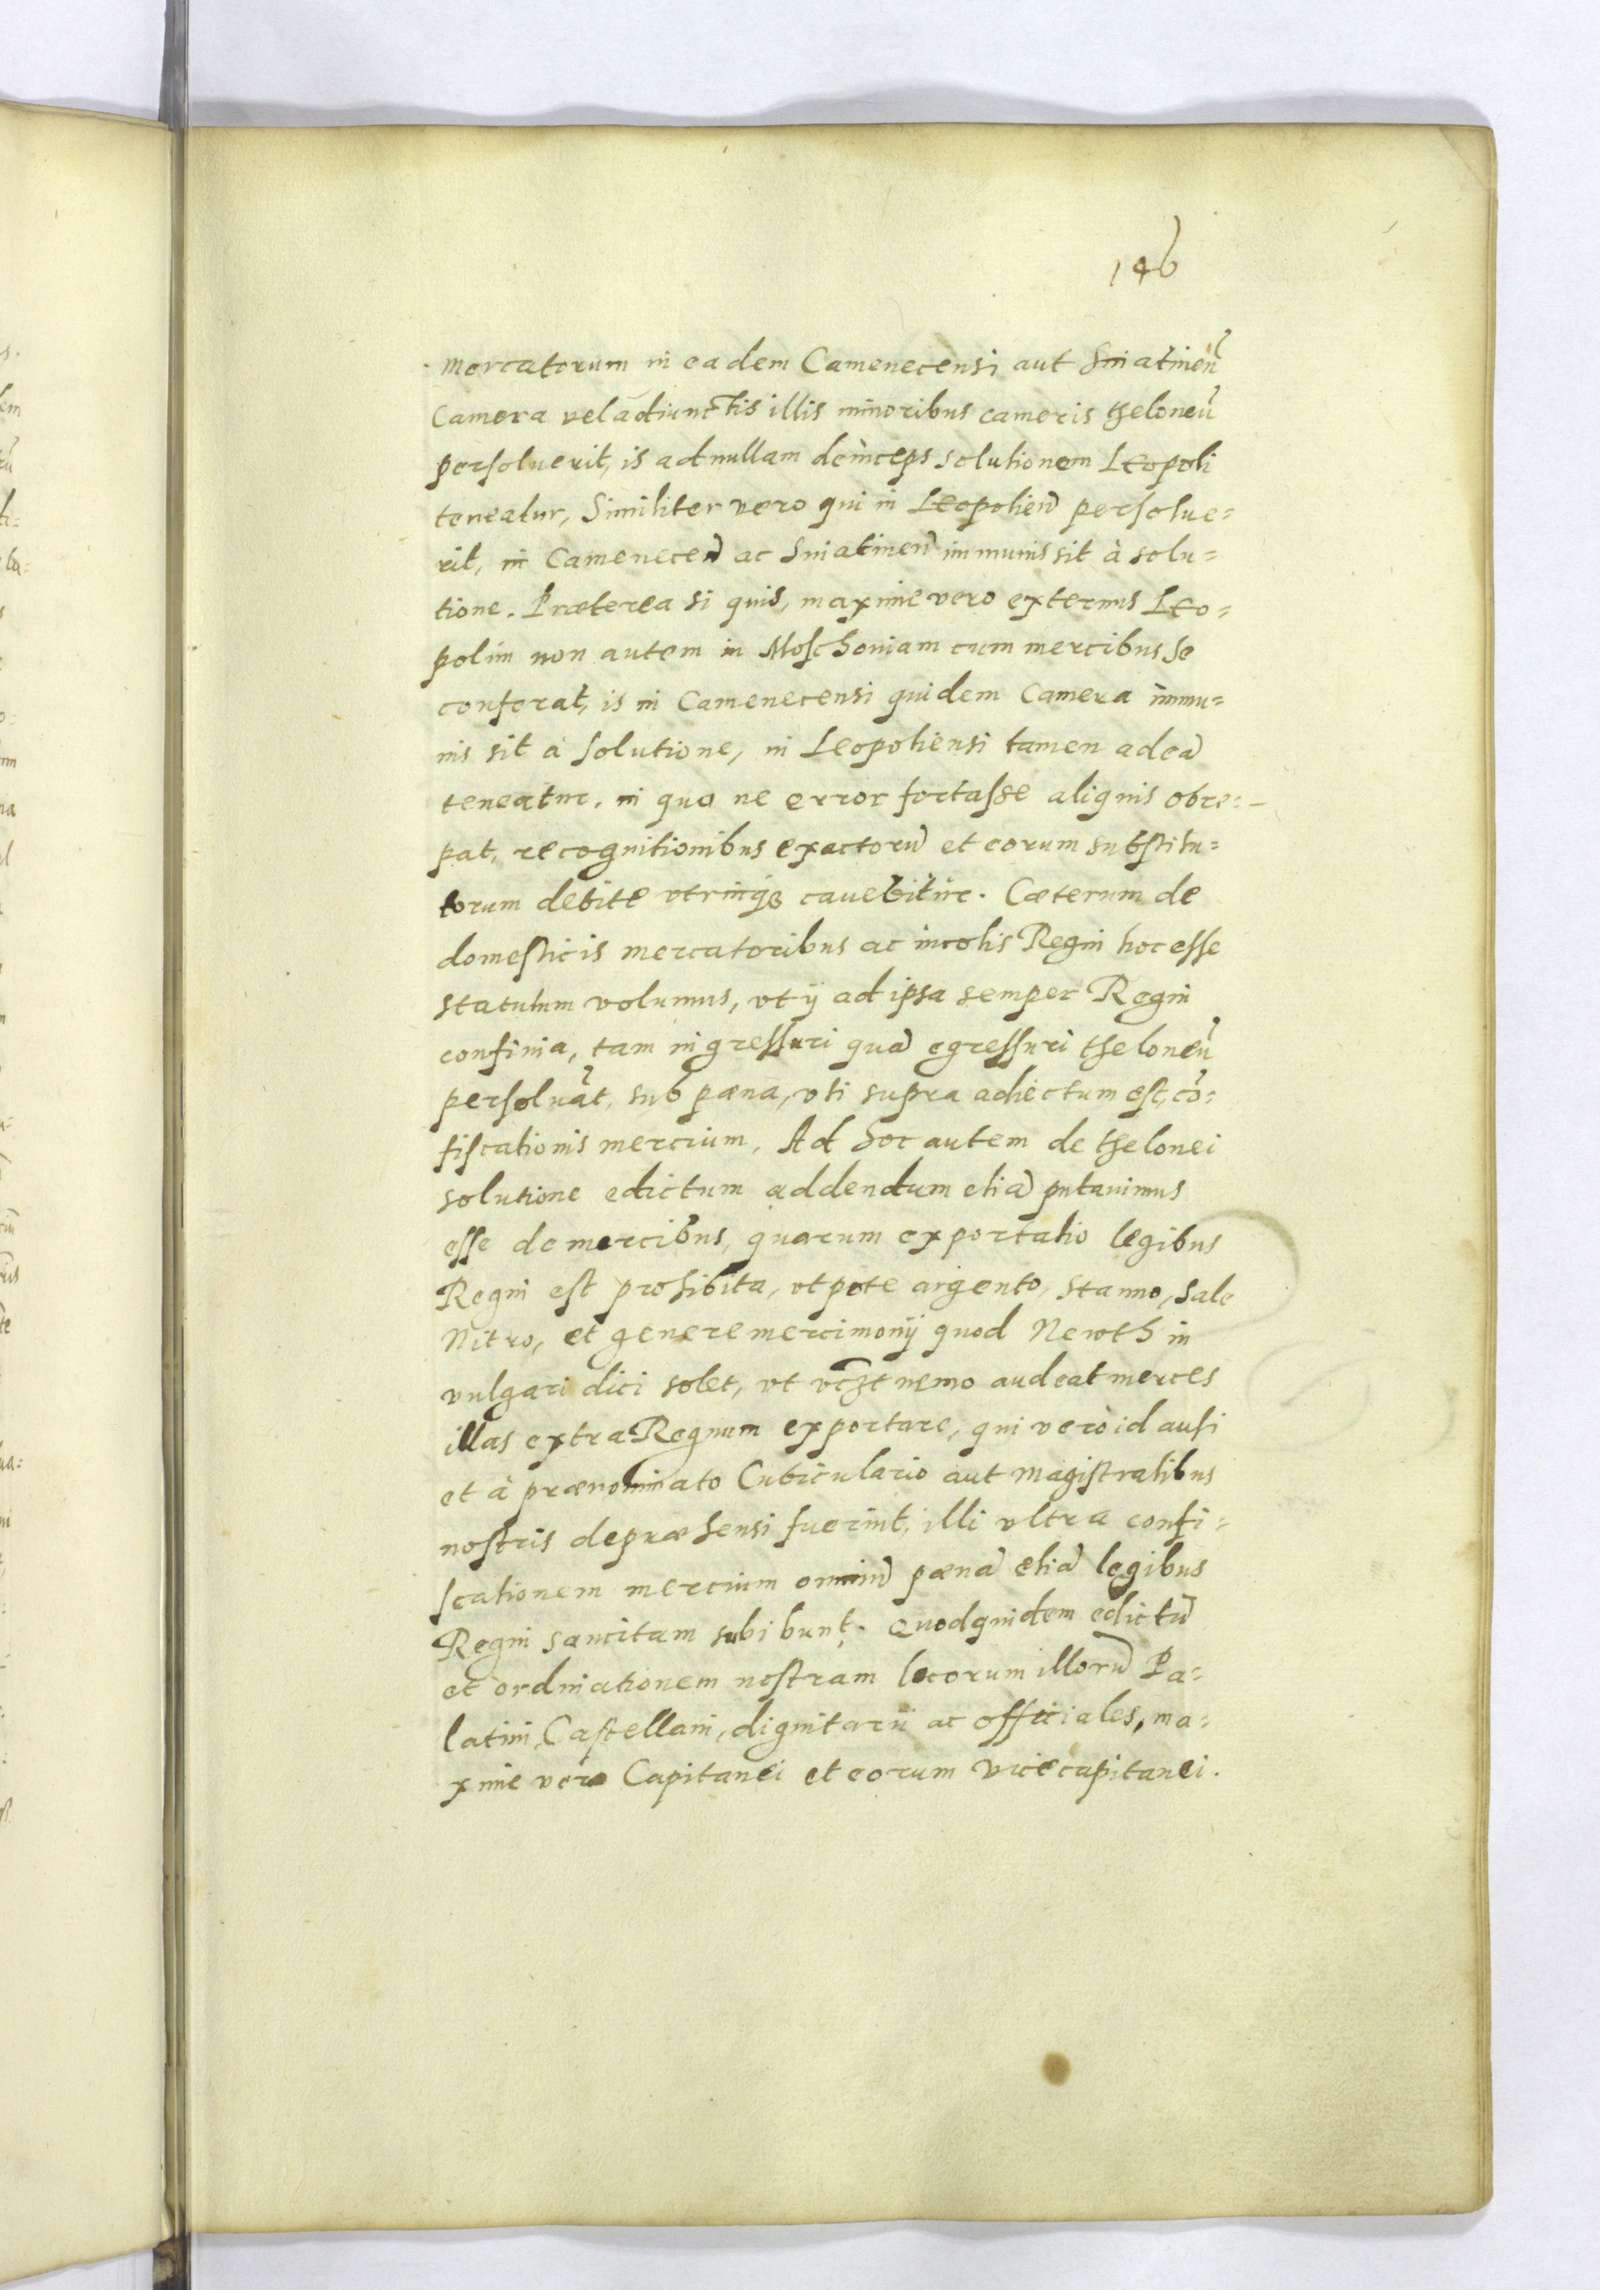 146
mercatorum in eadem Camenecensi aut Sniatineñ
Camera vel adiunctis illis minoribus cameris theloneũ
persoluerit, is ad nullam deinceps solutionem Leopoli
teneatur, Similiter vero qui in Leopolieñ persolue=
rit, in Cameneceñ ac Sniatineñ immunis sit à solu=
tione. Præterea si quis, maxime vero externus Leo=
polim non autem in Moschouiam cum mercibus se
conferat, is in Camenecensi quidem Camera immu=
nis sit à solutione, in Leopoliensi tamen ad eã
teneatur. in quo ne error fortasse aliquis obre=
pat, recognitionibus exactorũ et eorum substitu=
torum debite vtrinqꝫ cauebitur. Cæterum de
domesticis mercatoribus ac incolis Regni hoc esse
statutum volumus, vt ij ad ipsa semper Regni
confinia, tam ingressuri quã egressuri theloneũ
persoluãt, sub pæna, vti supra adiectum est, cõ=
fiscationis mercium. Ad hoc autem de thelonei
solutione edictum addendum etiã putauimus
esse de mercibus, quarum exportatio legibus
Regni est prohibita, vtpote argento, stanno, sale
Nitro, et genere mercimonij quod Newth in
vulgari dici solet, vt vcꝫt nemo audeat merces
illas extra Regnum exportare, qui verò id ausi
et à prænominato Cubiculario aut Magistratibus
nostris depræhensi fuerint, illi vltra confi=
scationem mercium omniũ pænã etiã legibus
Regni sancitam subibunt. Quodquidem edictũ
et ordinationem nostram locorum illorũ Pa=
latini, Castellani, dignitarij ac officiales, ma=
xime vero Capitanei et eorum vicecapitanei.